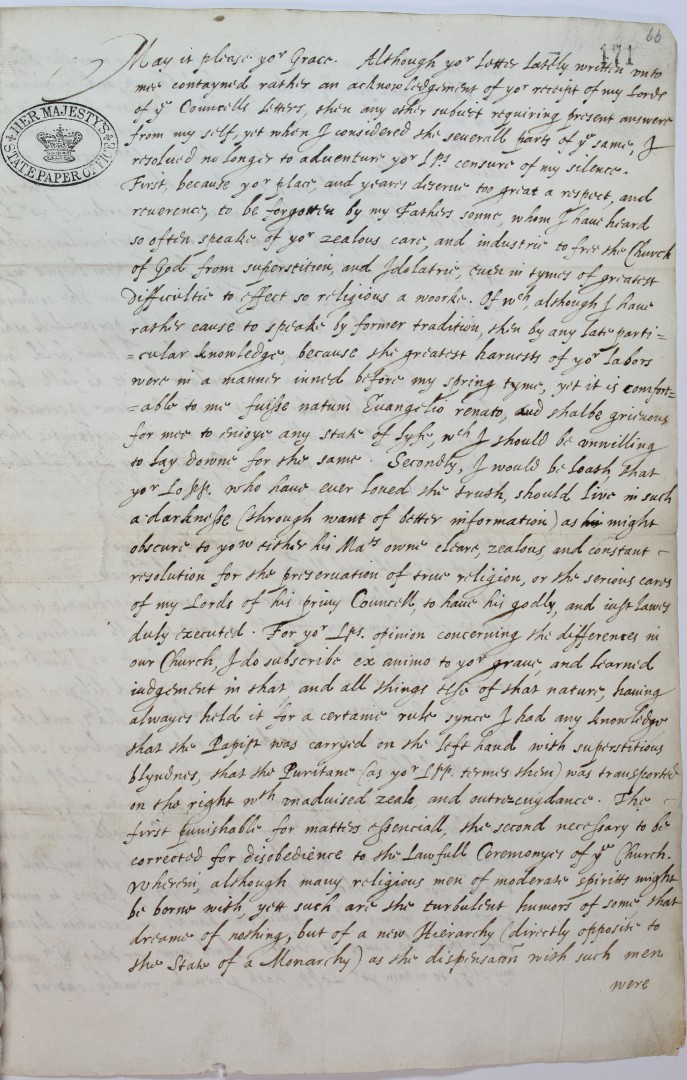 66
171
HER MAJESTY'S
STATE PAPER OFFICE
May it please yor Grace. Although yor Letter lately written unto
mee contayned rather an acknowledgement of yor receipt of my Lords
of ye Councells letters, then any other subiect requiring present answere
from my self, yet when I considered the severall parts of ye same, I
resolved no longer to adventure yor Lps censure of my silence.
First, because yor place, and yeares deserve too great a respect, and
reverence, to be forgotten by my Fathers sonne, whom I have heard
so often speake of yor zealous care, and industrie to free the Church
of God from superstition, and Idolatrie, even in tymes of greatest
difficultie to effect so religious a woorke. Of wch, although I have
rather cause to speake by former tradition, then by any late parti=
=cular knowledge, because the greatest harvests of yor labors
were in a manner inned before my spring tyme, yet it is comfort=
=able to me fuisse natum Evangelio renato, and shalbe grievous
for mee to enioye any state of lyfe, wch I should be unwilling
to lay downe for the same. Secondly, I would be loath, that
yor Lopp. who have ever loved the truth, should live in such
a darknesse (through want of better information) as might
obscure to yow either his Mats owne cleare, zealous, and constant
resolution for the preservation of true religion, or the serious cares
of my Lords of his privy Councell, to have his godly, and iust lawes
duly executed. For yor Lps. opinion concerning the differences in
our Church, I do subscribe ex animo to yor grave, and learned
iudgement in that and all things else of that nature, having
alwayes held it for a certaine rule synce I had any knowledge
that the Papist was carryed on the left hand with superstitious
blyndnes, that the Puritane (as yor Lpp. termes them) was transported
on the right wth unadvised zeale, and outrecuydance. The
first punishable for matters essenciall, the second necessary to be
corrected for disobedience to the Lawfull Ceremonyes of ye Church.
Wherein, although many religious men of moderate spiritts might
be borne with, yett such are the turbulent humors of some that
dreame of nothing, but of a new Hierarchy (directly opposite to
the State of a Monarchy) as the dispensacon with such men
were